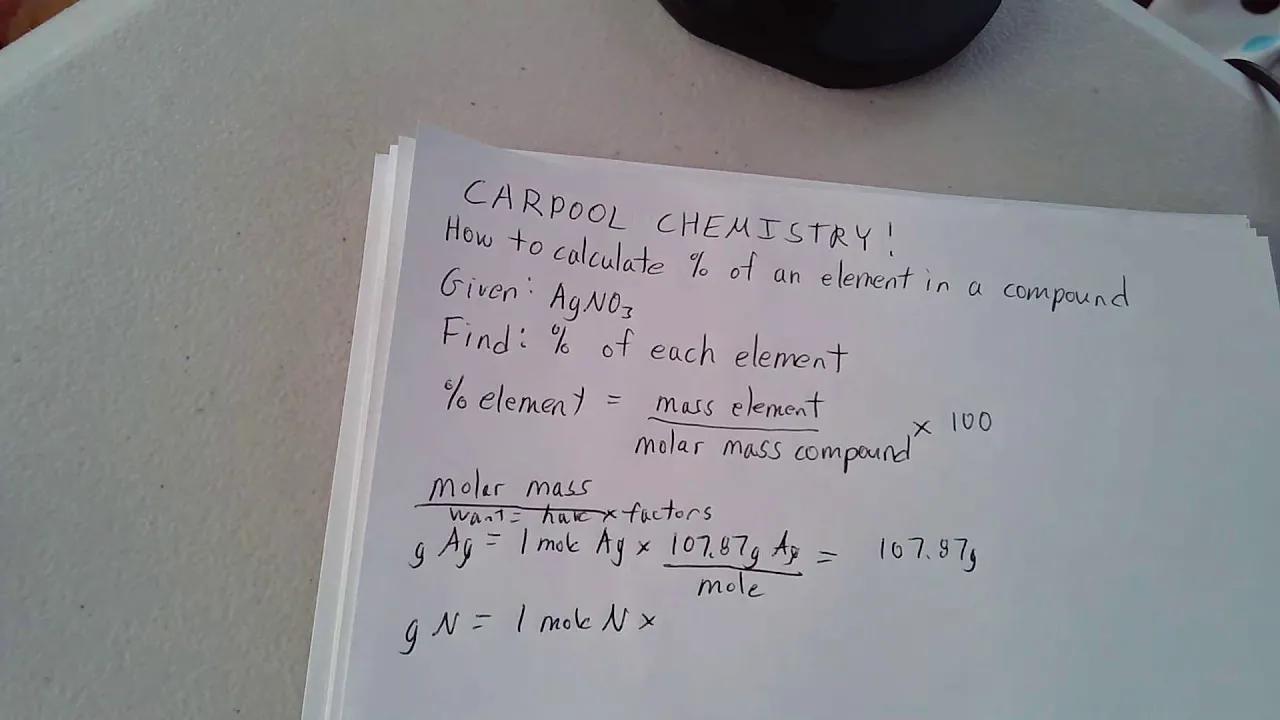 CARPOOL CHEMISTRY!
How to calculate % of an element in a compound
Given: AgNO₃
Find: % of each element
% element = mass element / molar mass compound × 100
molar mass
want = have × factors
g Ag = 1 mole Ag × 107.87g Ag / mole = 107.87g
g N = 1 mole N ×